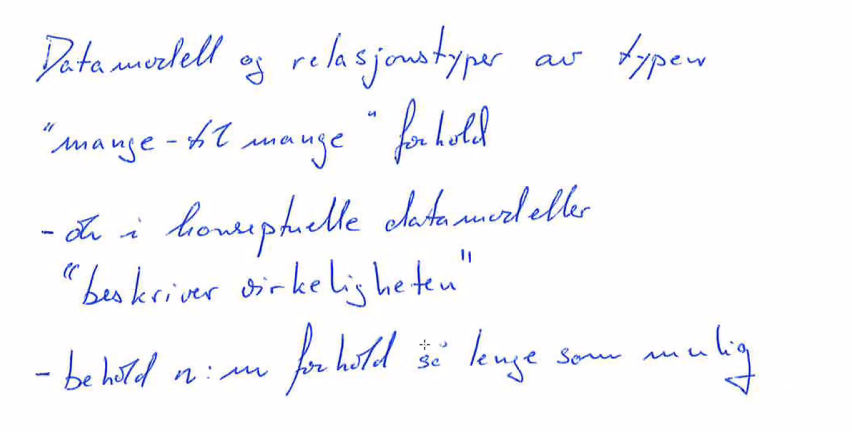 Datamodell og relasjonstyper av typen
"mange-til mange" forhold
- ok i konseptuelle datamodeller
"beskriver virkeligheten"
- behold n:m forhold så lenge som mulig